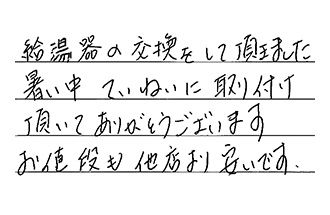 給湯器の交換をして頂きました
暑い中 ていねいに取り付け
頂いてありがとうございます
お値段も他店より安いです.